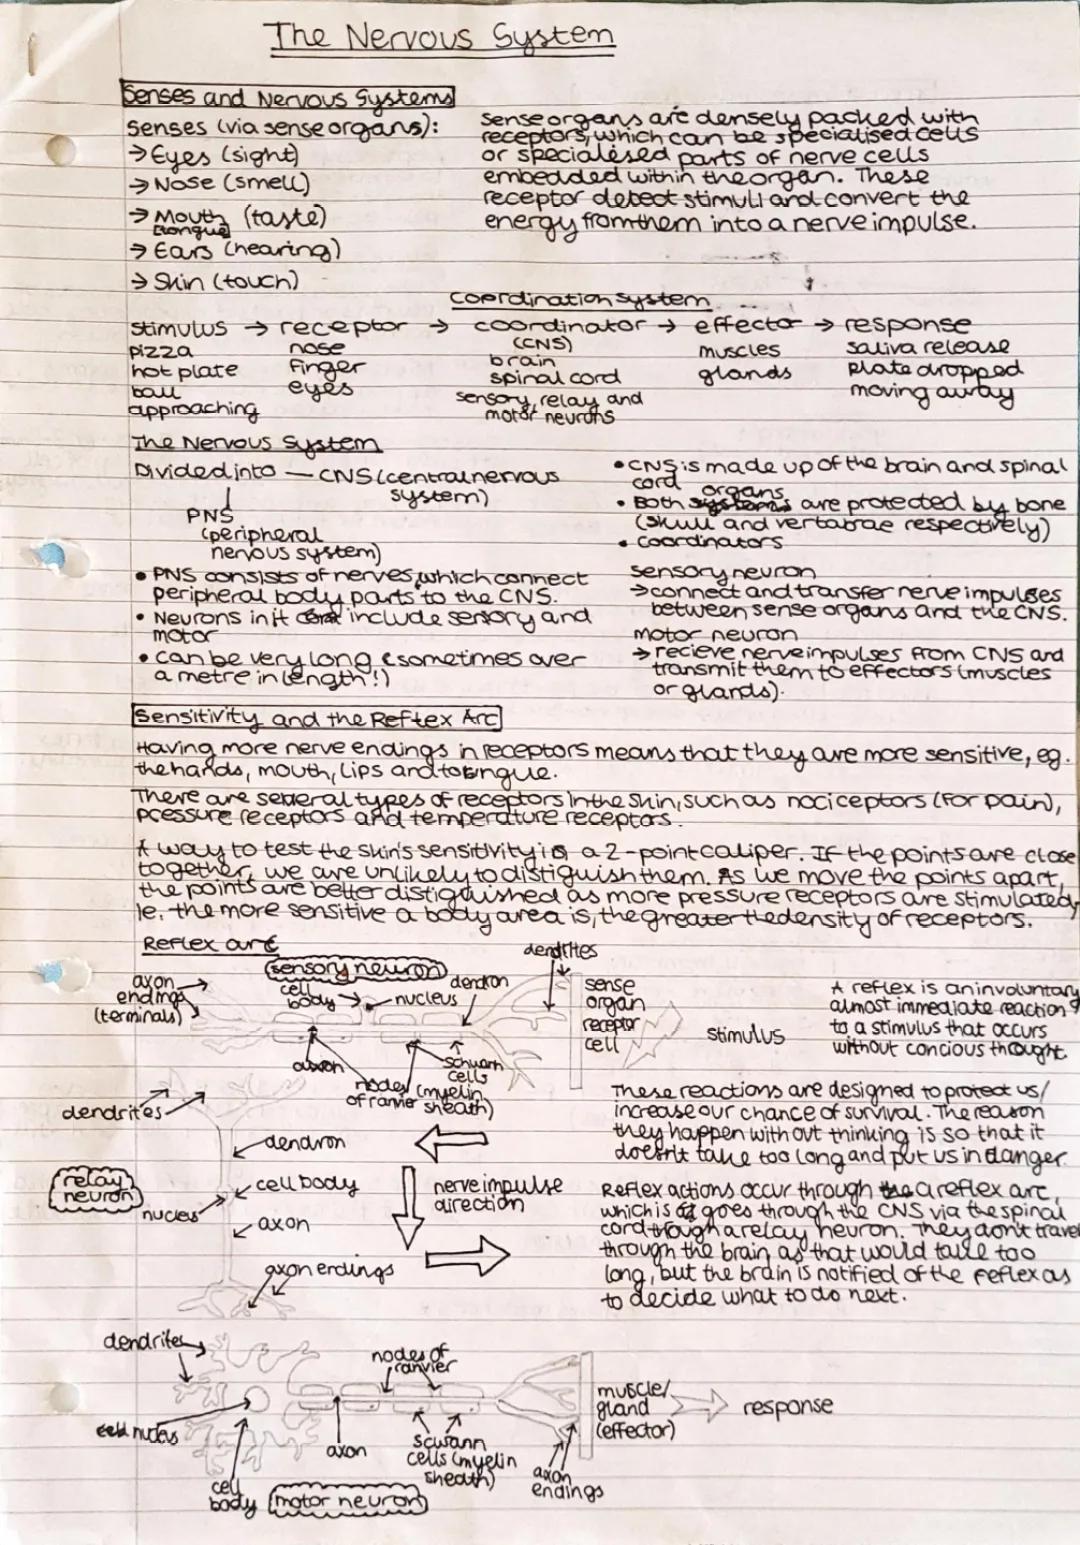 The Nervous System
Senses and Nervous Systems
Senses (via sense organs):
→ Eyes (sight)
→ Nose (smell)
→ Mouth (taste)
[tongue]
→ Ears (hearing)
→ Skin (touch)
Sense organs are densely packed with
receptors, which can be specialised cells
or specialised parts of nerve cells
embedded within the organ. These
receptor detect stimuli and convert the
energy from them into a nerve impulse.
Coordination System
stimulus → receptor → coordinator → effector → response
(CNS)
pizza nose brain muscles saliva release
hot plate finger spinal cord glands plate dropped
ball eyes sensory, relay and moving away
approaching motor neurons
The Nervous System
Divided into — CNS (central nervous
system)
↓
PNS
(peripheral
nervous system)
• CNS is made up of the brain and spinal
cord
• Both organs are protected by bone
(skull and vertabrae respectively)
• Coordinators
• PNS consists of nerves, which connect
peripheral body parts to the CNS.
• Neurons in it include sensory and
motor
• Can be very long (sometimes over
a metre in length!)
sensory neuron
→ connect and transfer nerve impulses
between sense organs and the CNS.
motor neuron
→ recieve nerve impulses from CNS and
transmit them to effectors (muscles
or glands).
Sensitivity and the Reflex Arc
Having more nerve endings in receptors means that they are more sensitive, eg.
the hands, mouth, lips and tongue.
There are several types of receptors in the skin, such as nociceptors (for pain),
pressure receptors and temperature receptors.
A way to test the skin's sensitivity is a 2-point caliper. If the points are close
together, we are unlikely to distiguish them. As we move the points apart,
the points are better distiguished as more pressure receptors are stimulated,
ie, the more sensitive a body area is, the greater the density of receptors.
Reflex arc
sensory neuron
dendrites
axon
endings
(terminals)
cell
body
nucleus
dendron
sense
organ
receptor
cell
stimulus
axon
nodes
of ranvier
schwann
cells
(myelin
sheath)
A reflex is an involuntary,
almost immediate reaction
to a stimulus that occurs
without concious thought.
These reactions are designed to protect us/
increase our chance of survival. The reason
they happen without thinking is so that it
doesn't take too long and put us in danger.
Reflex actions occur through a reflex arc,
which is goes through the CNS via the spinal
cord through a relay neuron. They don't travel
through the brain as that would take too
long, but the brain is notified of the reflex as
to decide what to do next.
dendrites
dendron
relay
neuron
cell body
nucleus
axon
axon endings
nerve impulse
direction
dendrites
nodes of
ranvier
muscle/
gland
(effector)
response
nucleus
axon
schwann
cells (myelin
sheath)
axon
endings
cell
body
motor neuron